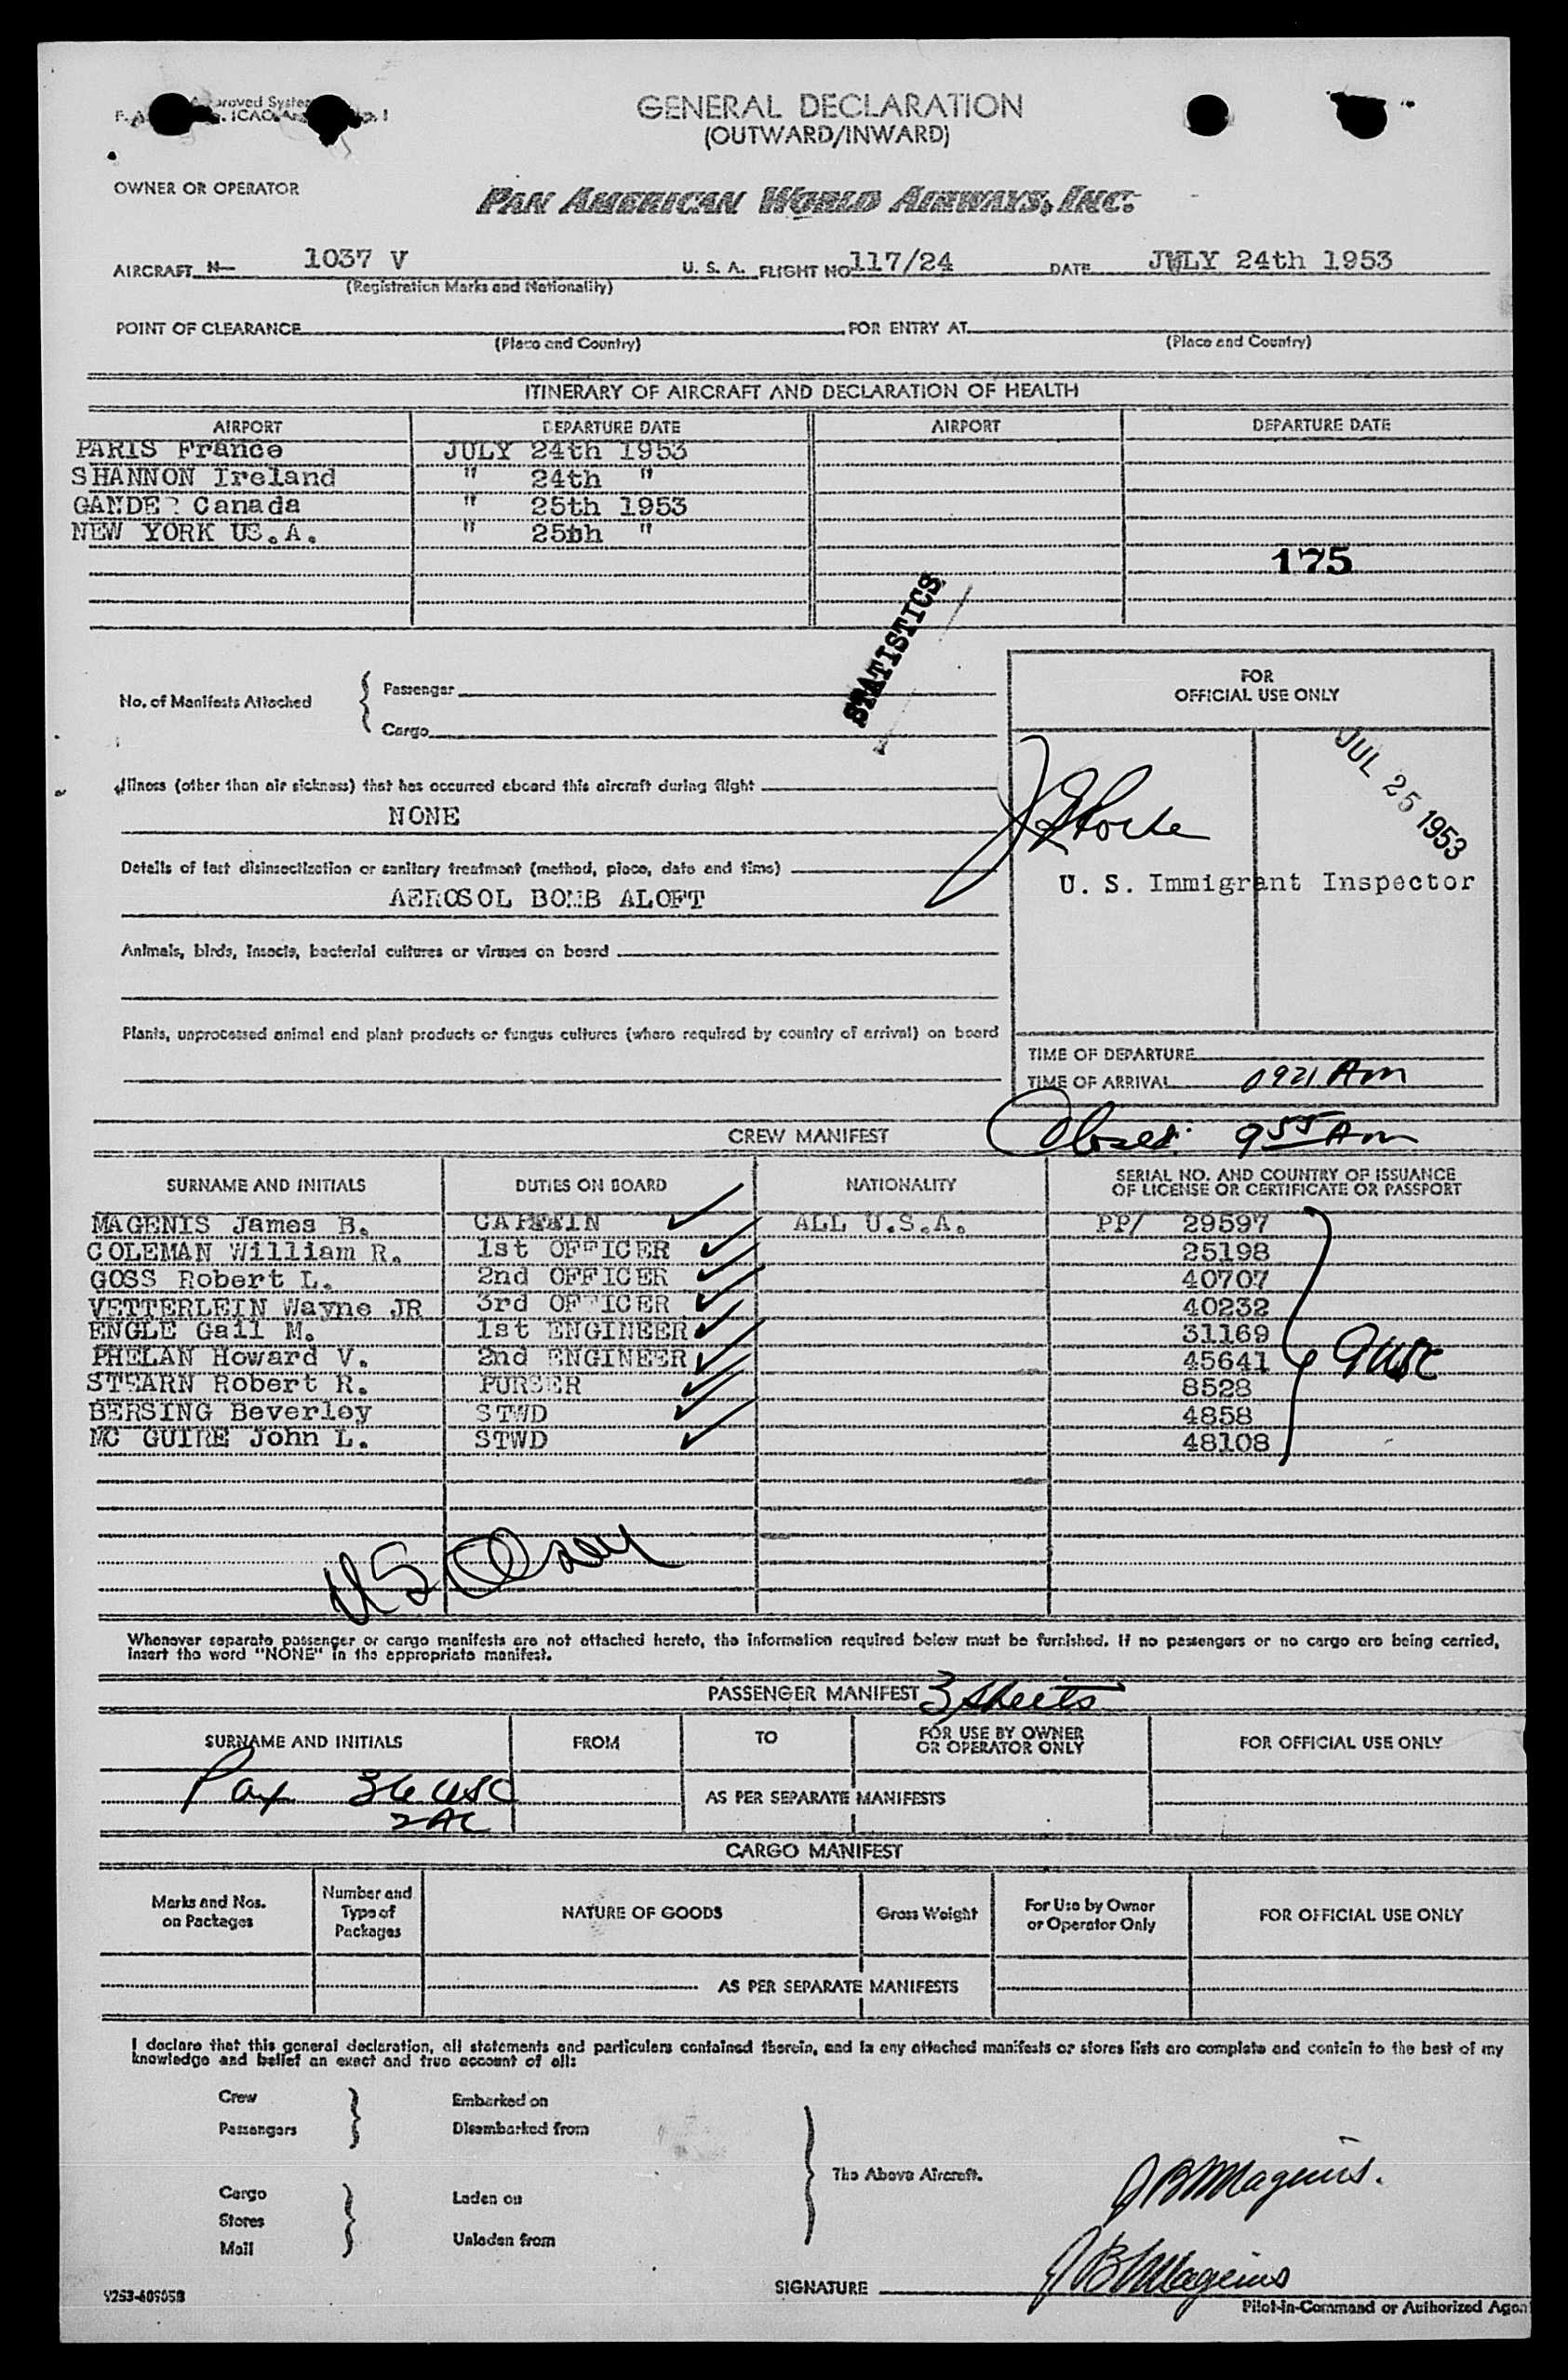 GENERAL DECLARATION
(OUTWARD/INWARD)
OWNER OR OPERATOR
PAN AMERICAN WORLD AIRWAYS, INC.
AIRCRAFT N- 1037 V U. S. A. FLIGHT NO 117/24 DATE JULY 24th 1953
(Registration Marks and Nationality)
POINT OF CLEARANCE FOR ENTRY AT
(Place and Country) (Place and Country)
ITINERARY OF AIRCRAFT AND DECLARATION OF HEALTH
AIRPORT DEPARTURE DATE AIRPORT DEPARTURE DATE
PARIS France JULY 24th 1953
SHANNON Ireland " 24th "
GANDER Canada " 25th 1953
NEW YORK US.A. " 25th "
175
STATISTICS
No. of Manifests Attached { Passenger
Cargo
FOR
OFFICIAL USE ONLY
JUL 25 1953
Illness (other than air sickness) that has occurred aboard this aircraft during flight
NONE
Details of last disinsectization or sanitary treatment (method, place, date and time)
AEROSOL BOMB ALOFT
U. S. Immigrant Inspector
Animals, birds, insects, bacterial cultures or viruses on board
Plants, unprocessed animal and plant products or fungus cultures (where required by country of arrival) on board
TIME OF DEPARTURE
TIME OF ARRIVAL 0921 AM
Closed: 9 55 AM
CREW MANIFEST
SURNAME AND INITIALS DUTIES ON BOARD NATIONALITY SERIAL NO. AND COUNTRY OF ISSUANCE
OF LICENSE OR CERTIFICATE OR PASSPORT
MAGENIS James B. CAPTAIN ALL U.S.A. PP/ 29597
COLEMAN William R. 1st OFFICER 25198
GOSS Robert L. 2nd OFFICER 40707
VETTERLEIN Wayne JR 3rd OFFICER 40232
ENGLE Gail M. 1st ENGINEER 31169
PHELAN Howard V. 2nd ENGINEER 45641
STEARN Robert R. PURSER 8528
BERSING Beverley STWD 4858
MC GUIRE John L. STWD 48108
9 USC
Whenever separate passenger or cargo manifests are not attached hereto, the information required below must be furnished. If no passengers or no cargo are being carried,
insert the word "NONE" in the appropriate manifest.
PASSENGER MANIFEST 3 sheets
SURNAME AND INITIALS FROM TO FOR USE BY OWNER
OR OPERATOR ONLY FOR OFFICIAL USE ONLY
Pax 36 USC
2 AC
AS PER SEPARATE MANIFESTS
CARGO MANIFEST
Marks and Nos.
on Packages
Number and
Type of
Packages
NATURE OF GOODS
Gross Weight
For Use by Owner
or Operator Only
FOR OFFICIAL USE ONLY
AS PER SEPARATE MANIFESTS
I declare that this general declaration, all statements and particulars contained therein, and in any attached manifests or stores lists are complete and contain to the best of my
knowledge and belief an exact and true account of all:
Crew Embarked on
Passengers Disembarked from
The Above Aircraft.
Cargo Laden on
Stores
Mail Unladen from
JBMagenis.
SIGNATURE JBMagenis
Pilot-in-Command or Authorized Agen